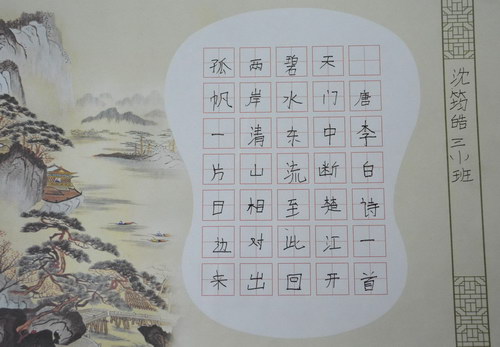 沈筠皓三小班
唐李白诗一首
天门中断楚江开
碧水东流至此回
两岸清山相对出
孤帆一片日边来